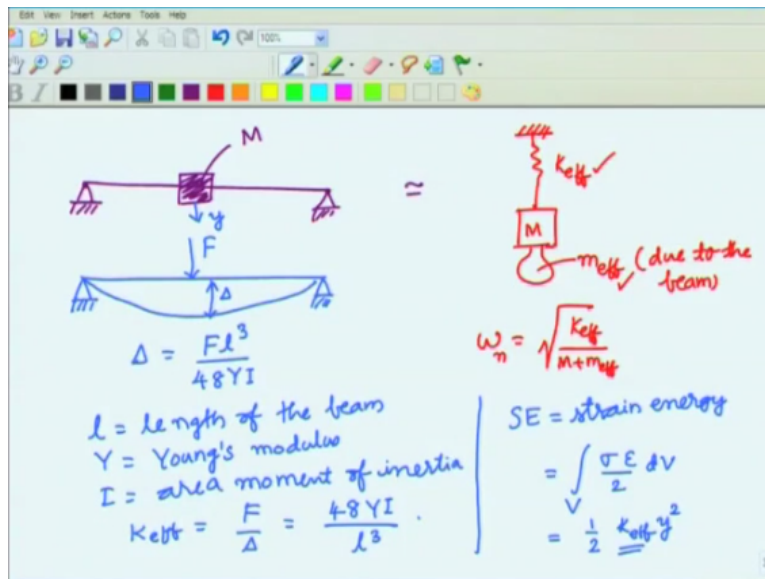 Edit View Insert Actions Tools Help
100%
B I
M
y
F
Δ
Δ = Fl³ / 48YI
l = length of the beam
Y = Young's modulus
I = area moment of inertia
Keff = F / Δ = 48YI / l³ .
≈
Keff ✓
M
meff (due to the beam) ✓
ωn = √(Keff / M+meff)
SE = strain energy
= ∫V σε / 2 dV
= 1/2 Keff y²